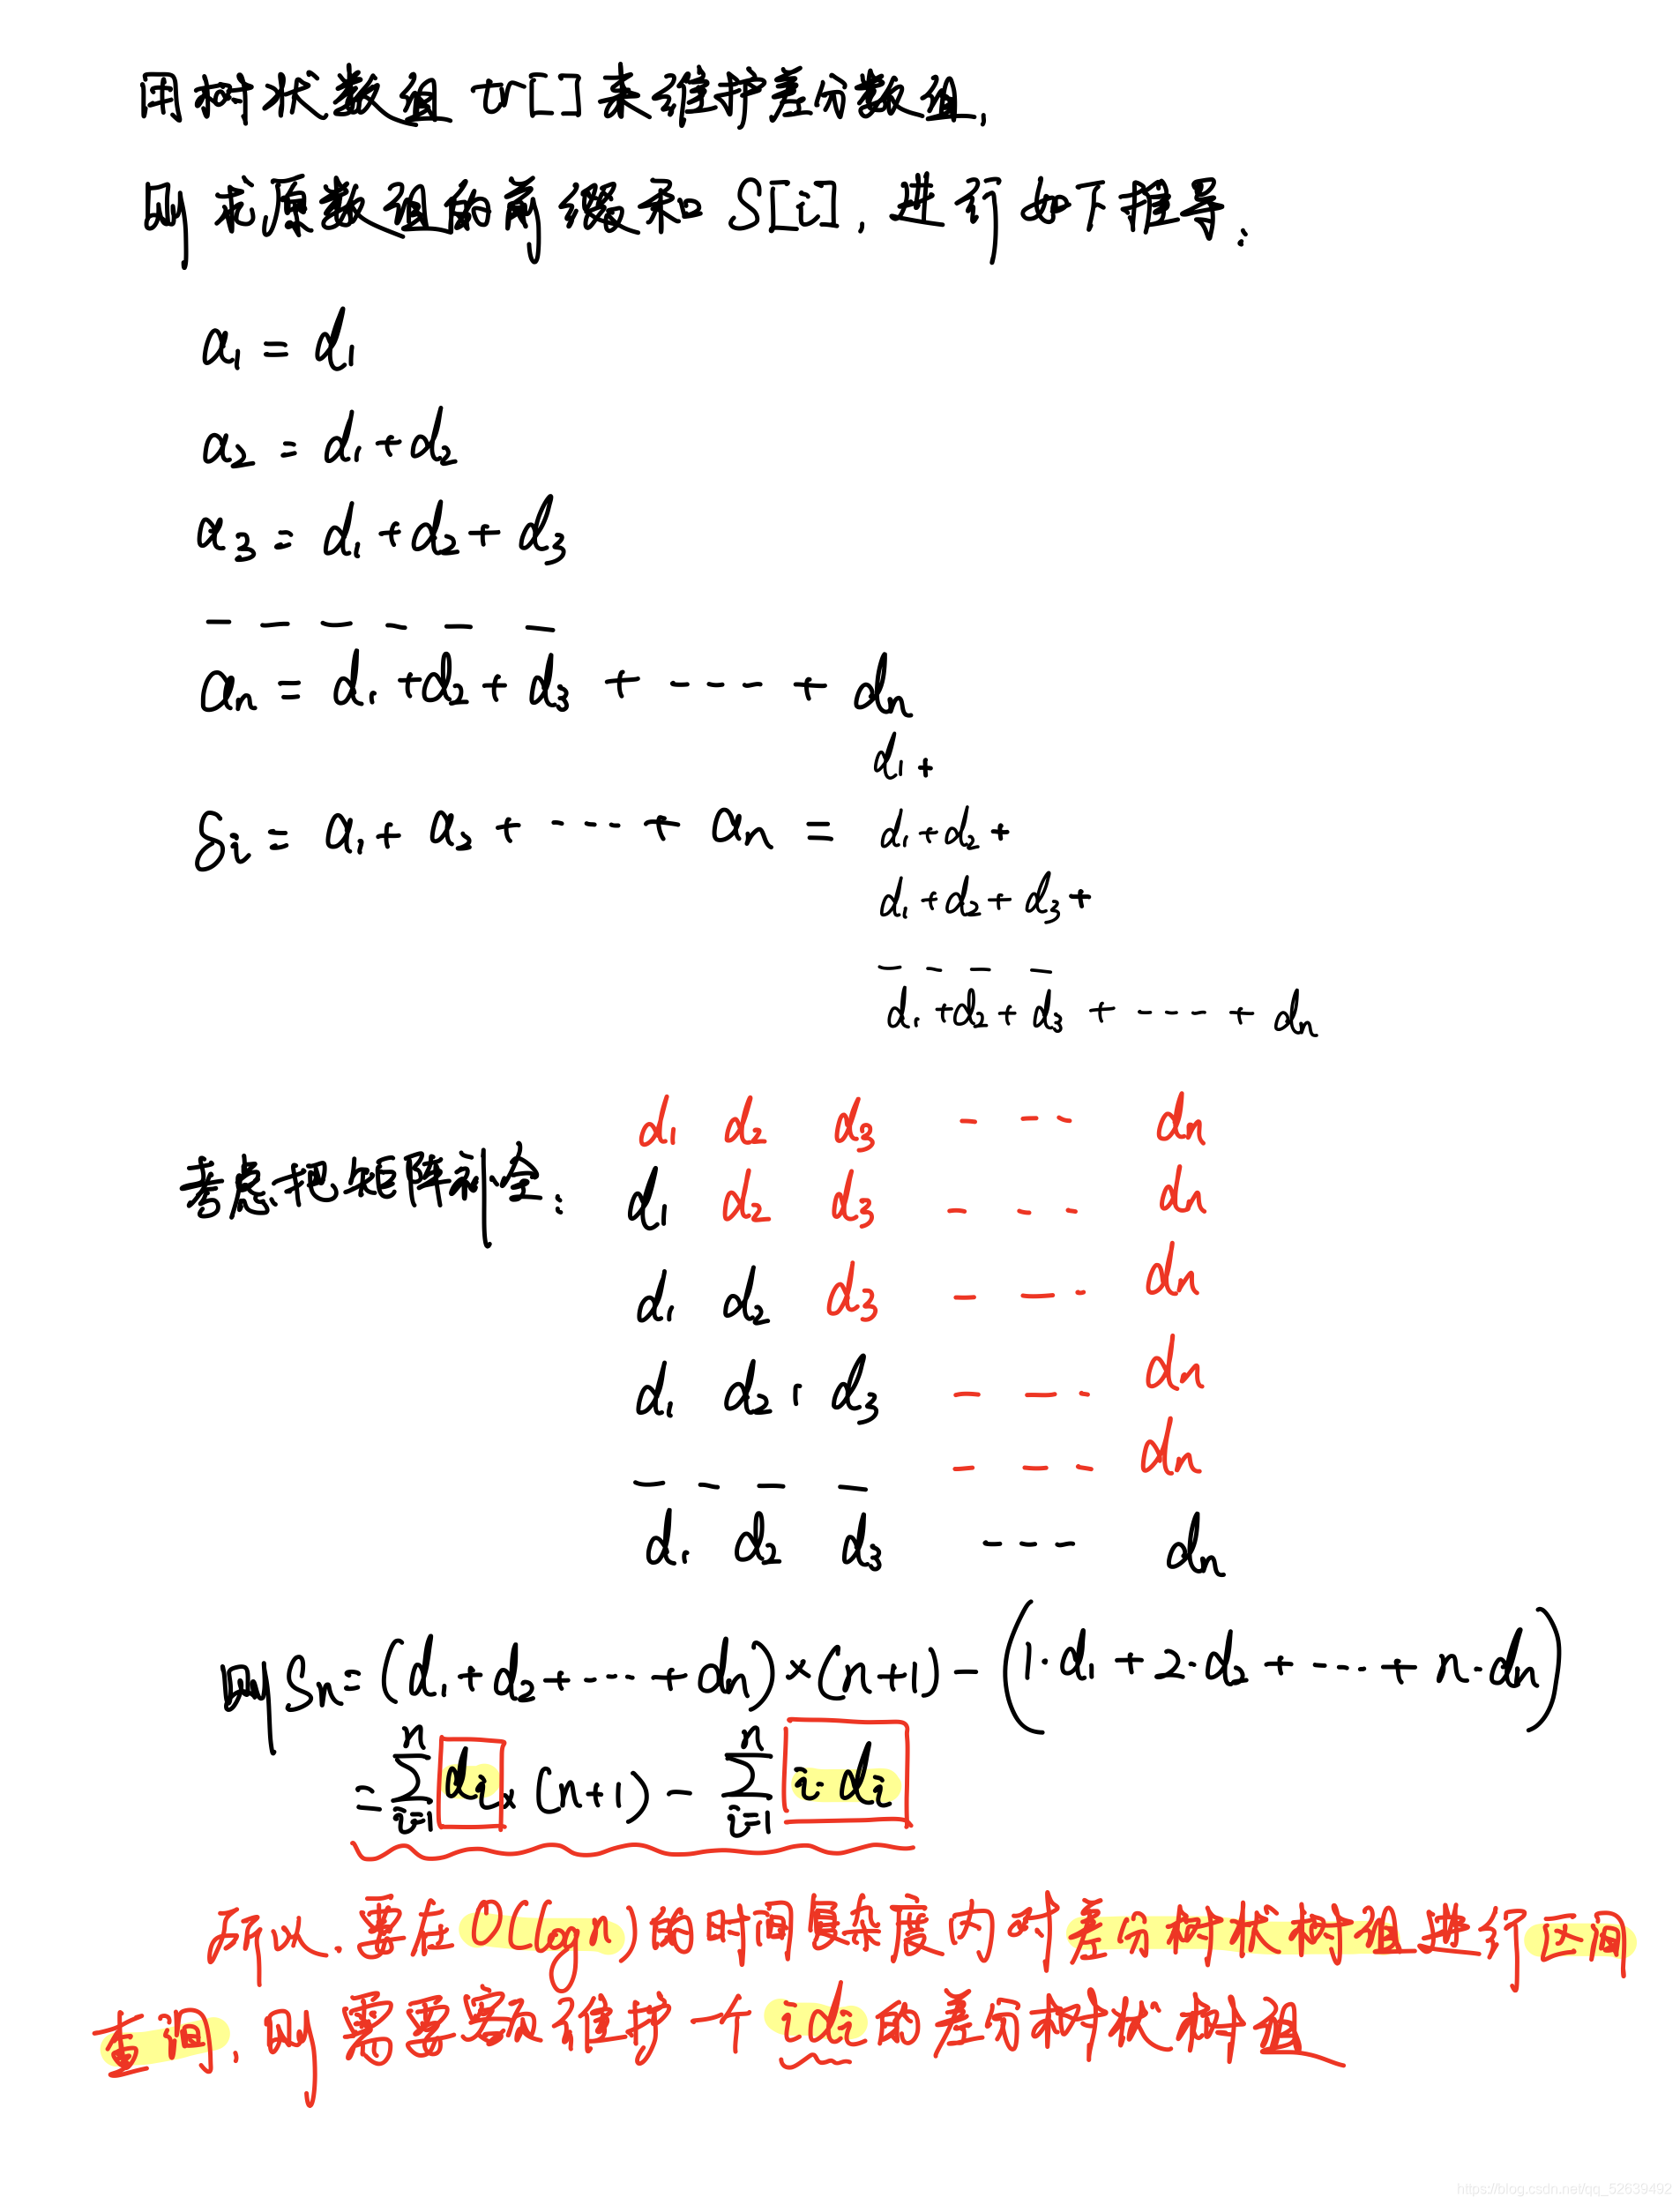 用树状数组 tr[]来维护差分数组,
则求原数组的前缀和 S[i], 进行如下推导:
a1 = d1
a2 = d1+d2
a3 = d1+d2+d3
- - - - - -
an = d1+d2+d3 + ---- + dn
d1+
Si = a1+ a2 + ---- + an = d1+d2+
d1+d2+d3+
- - - -
d1+d2+d3 + ---- + dn
d1 d2 d3 - -- dn
考虑把矩阵补全: d1 d2 d3 - - - dn
d1 d2 d3 - - - dn
d1 d2 d3 - - - dn
- - - - - - - dn
d1 d2 d3 --- dn
则 Sn=(d1+d2+---+dn)×(n+1) - (1·d1 + 2·d2 + ---+ n·dn)
=∑ⁿᵢ₌₁ di × (n+1) - ∑ⁿᵢ₌₁ i·di
所以.要在O(logn)的时间复杂度内对差分树状树组进行区间
查询,则需要客人维护一个idi的差分树状树组
https://blog.csdn.net/qq_52639492